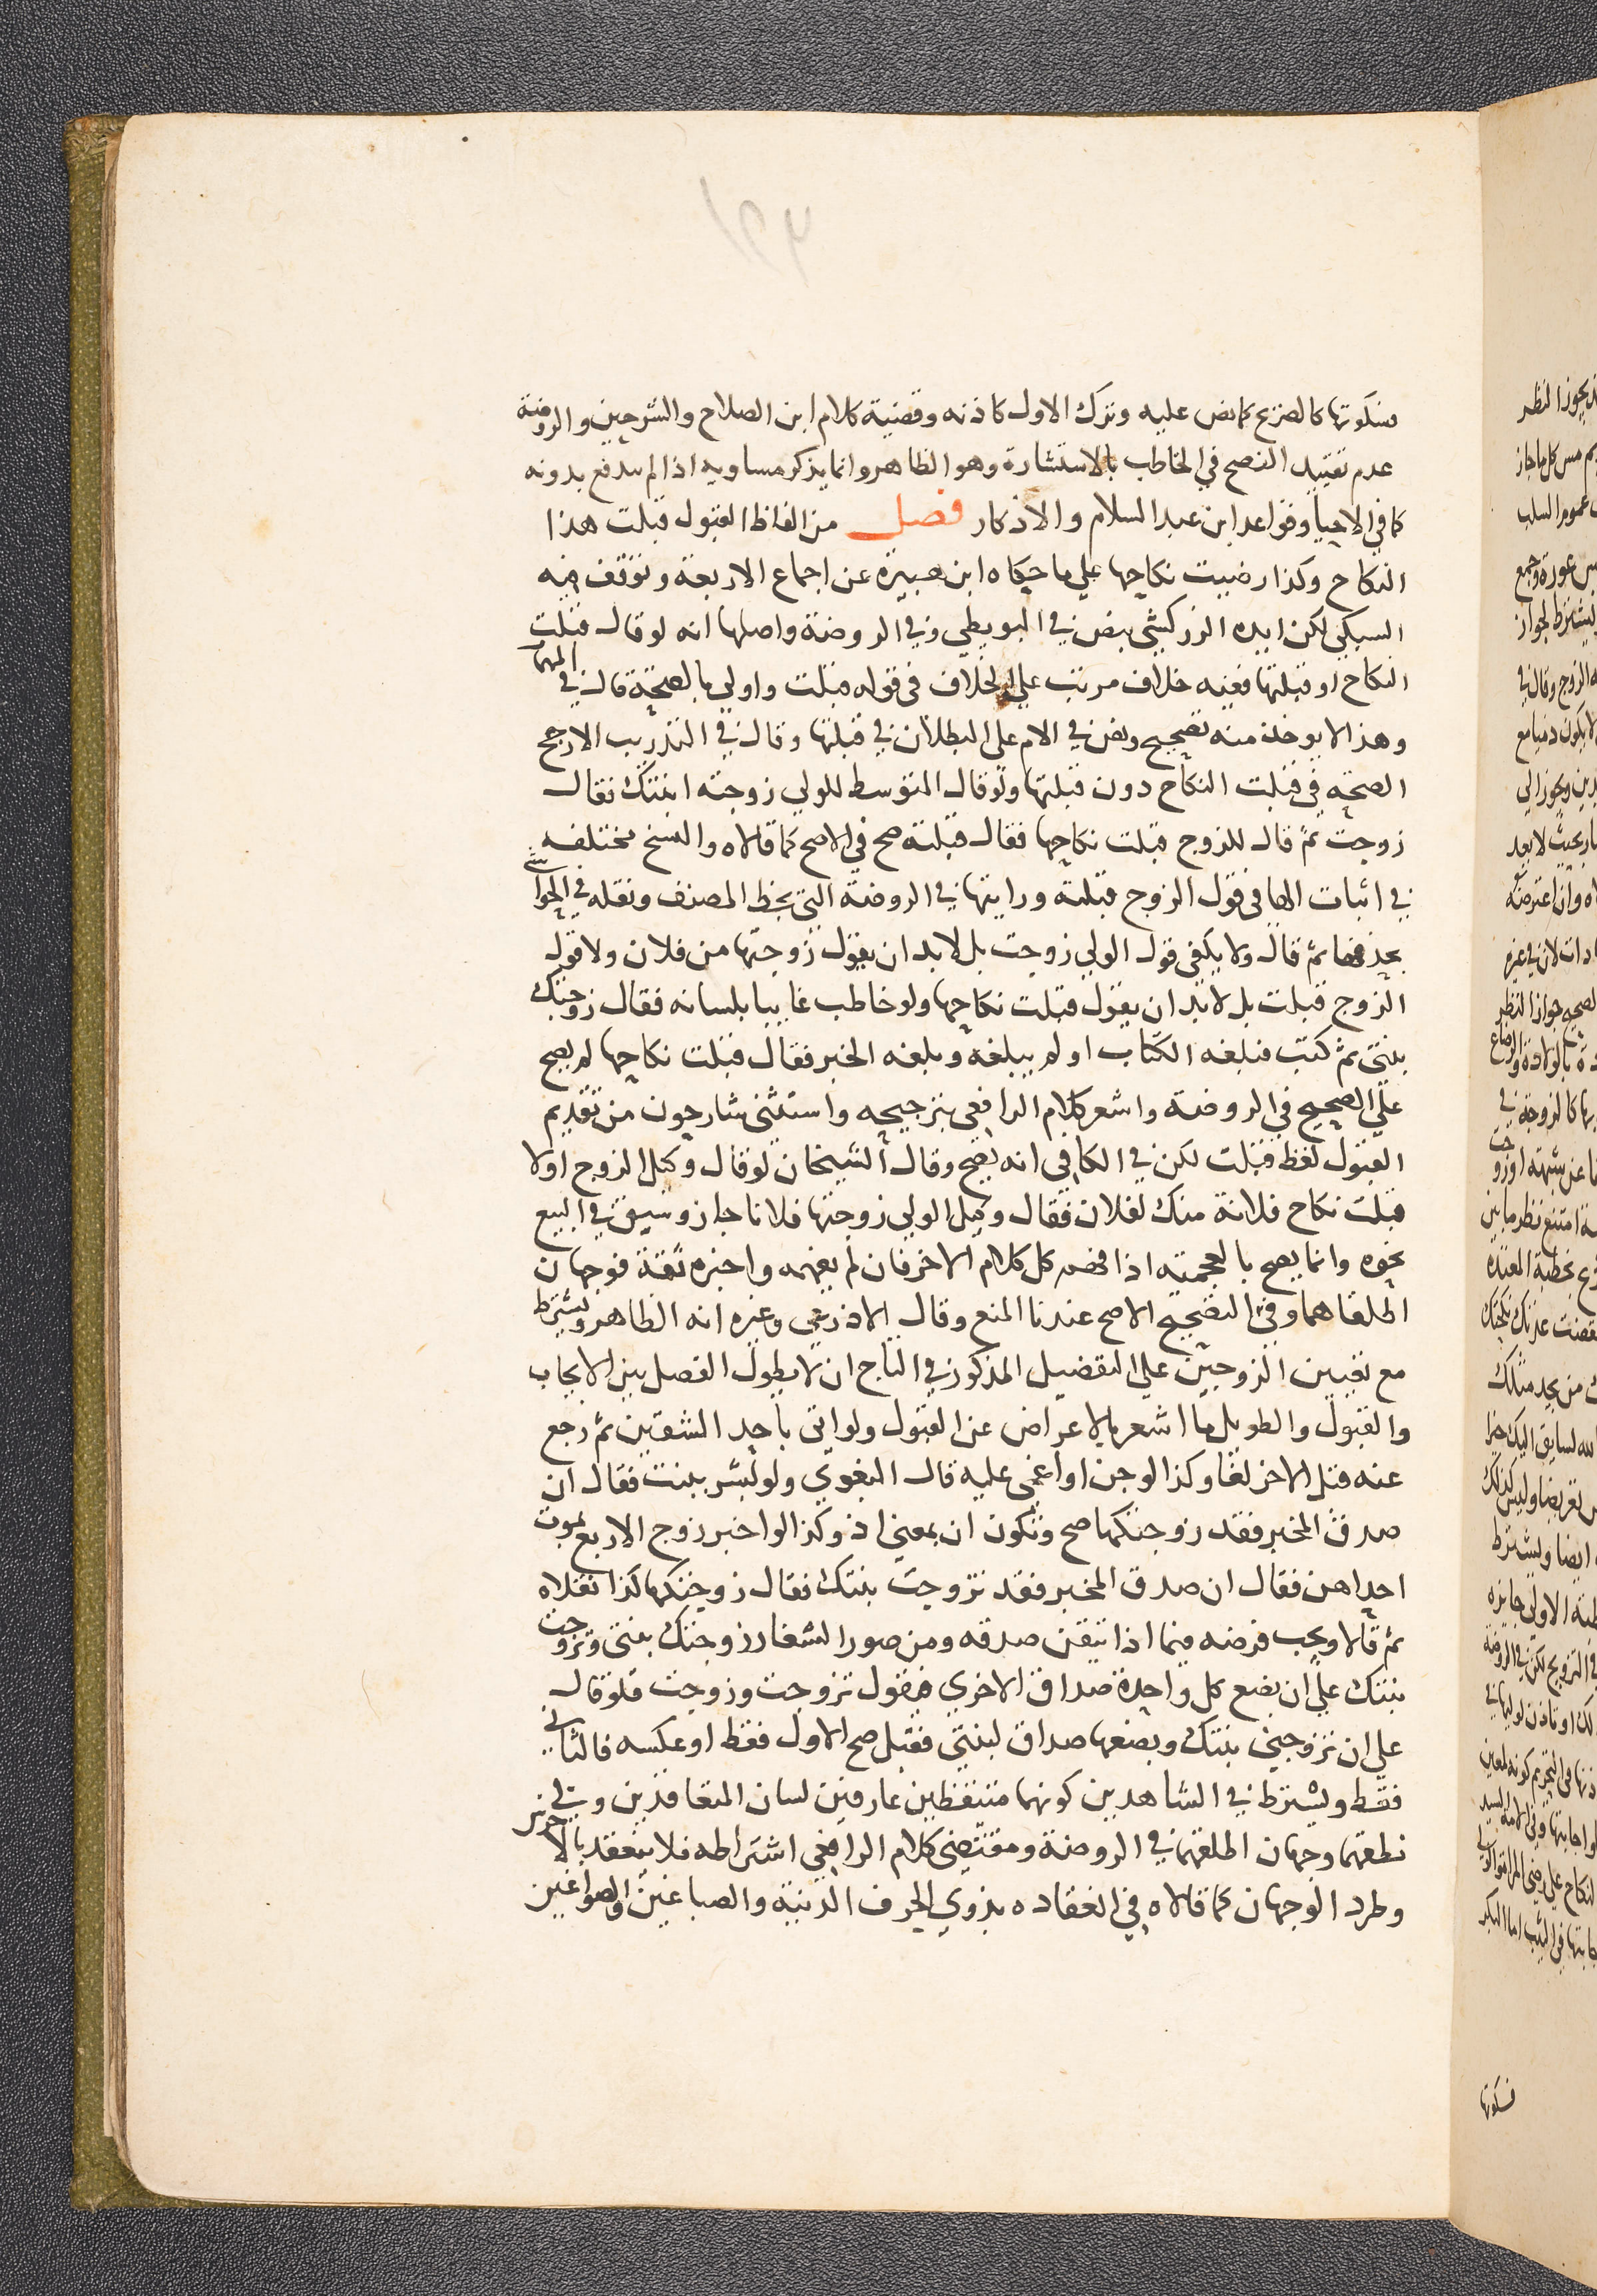 فسكوتها كالصريح كما نص عليه وترك الاول كاذنه وقضية كلام ابن الصلاح والشرحين والروضة
عدم تقييد النصح في المخاطب بالاستشارة وهو الظاهر وانما يذكر مساويه اذا لم يندفع بدونه
كما في الاحيا وقواعد ابن عبد السلام والاذكار فصل من الفاظ القبول قبلت هذا
النكاح وكذا رضيت نكاحها علي ما حكاه ابن هبيرة عن اجماع الاربعة وتوقف فيه
السبكي لكن ايده الزركشي بنص في البويطي وفي الروضة واصلها انه لو قال قبلت
النكاح او قبلتها ففيه خلاف مرتب علي الخلاف في قوله قبلت واولي بالصحة قال في المهمات
وهذا لا يوخذ منه تصحيح ونص في الام علي البطلان في قبلتها وقال في التدريب الارجح
الصحة في قبلت النكاح دون قبلتها ولو قال المتوسط للولي زوجته ابنتك فقال
زوجت ثم قال للزوج قبلت نكاحها فقال قبلته صح في الاصح كما قالاه والنسخ مختلفه
في اثبات الها في قول الزوج قبلته ورايتها في الروضة التي بخط المصنف ونقله في الحواشي
بحذفها ثم قال ولا يكفي قول الولي زوجت بل لا بد ان يقول زوجتها من فلان ولا قول
الزوج قبلت بل لا بد ان يقول قبلت نكاحها ولو خاطب غايبا بلسانه فقال زوجتك
بنتي ثم كتب فبلغه الكتاب او لم يبلغه وبلغه الخبر فقال قبلت نكاحها لم يصح
علي الصحيح في الروضة واشعر كلام الرافعي بترجيحه واستثني شارحون من تقديم
القبول لفظ قبلت لكن في الكافي انه يصح وقال الشيخان لو قال وكيل الزوج اولا
قبلت نكاح فلانة منك لفلان فقال وكيل الولي زوجتها فلانا جاز وسبق في البيع
نحوه وانما يصح بالعجمية اذا فهم كل كلام الاخر فان لم يفهمه واخبره ثقة فوجهان
اطلقاهما وفي التصحيح الاصح عندنا المنع وقال الاذرعي وغيره انه الظاهر ويشترط
مع تعيين الزوجين علي التفصيل المذكور في التاج ان لا يطول الفصل بين الايجاب
والقبول والطويل ما اشعر بالاعراض عن القبول ولو اتي باحد الشقين ثم رجع
عنه قبل الاخر لغا وكذا لو جن او اغمي عليه قال البغوي ولو بشر ببنت فقال ان
صدق المخبر فقد زوجتكها صح وتكون ان بمعني اذ وكذا لو اخبر زوج الاربع بموت
احداهن فقال ان صدق المخبر فقد تزوجت بنتك فقال زوجتكها كذا نقلاه
ثم قالا ويجب فرضه فيما اذا تيقن صدقه ومن صور الشغار زوجتك بنتي وتزوجت
بنتك علي ان بضع كل واحدة صداق الاخري فيقول تزوجت وزوجت فلو قال
علي ان تزوجني بنتك وبضعها صداق لبنتي فقبل صح الاول فقط او عكسه فالثاني
فقط ويشترط في الشاهدين كونهما متيقظين عارفين لسان المتعاقدين وفي
نطقهما وجهان اطلقهما في الروضة ومقتضي كلام الرافعي اشتراطه فلا ينعقد بالاخرس
وطرد الوجهان كما قالاه في انعقاده بذوي الحرف الدنية والصباغين والصواغين
فسكوتها